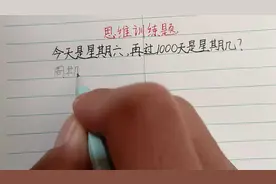 思维训练题
今天是星期六，再过1000天是星期几？
周期